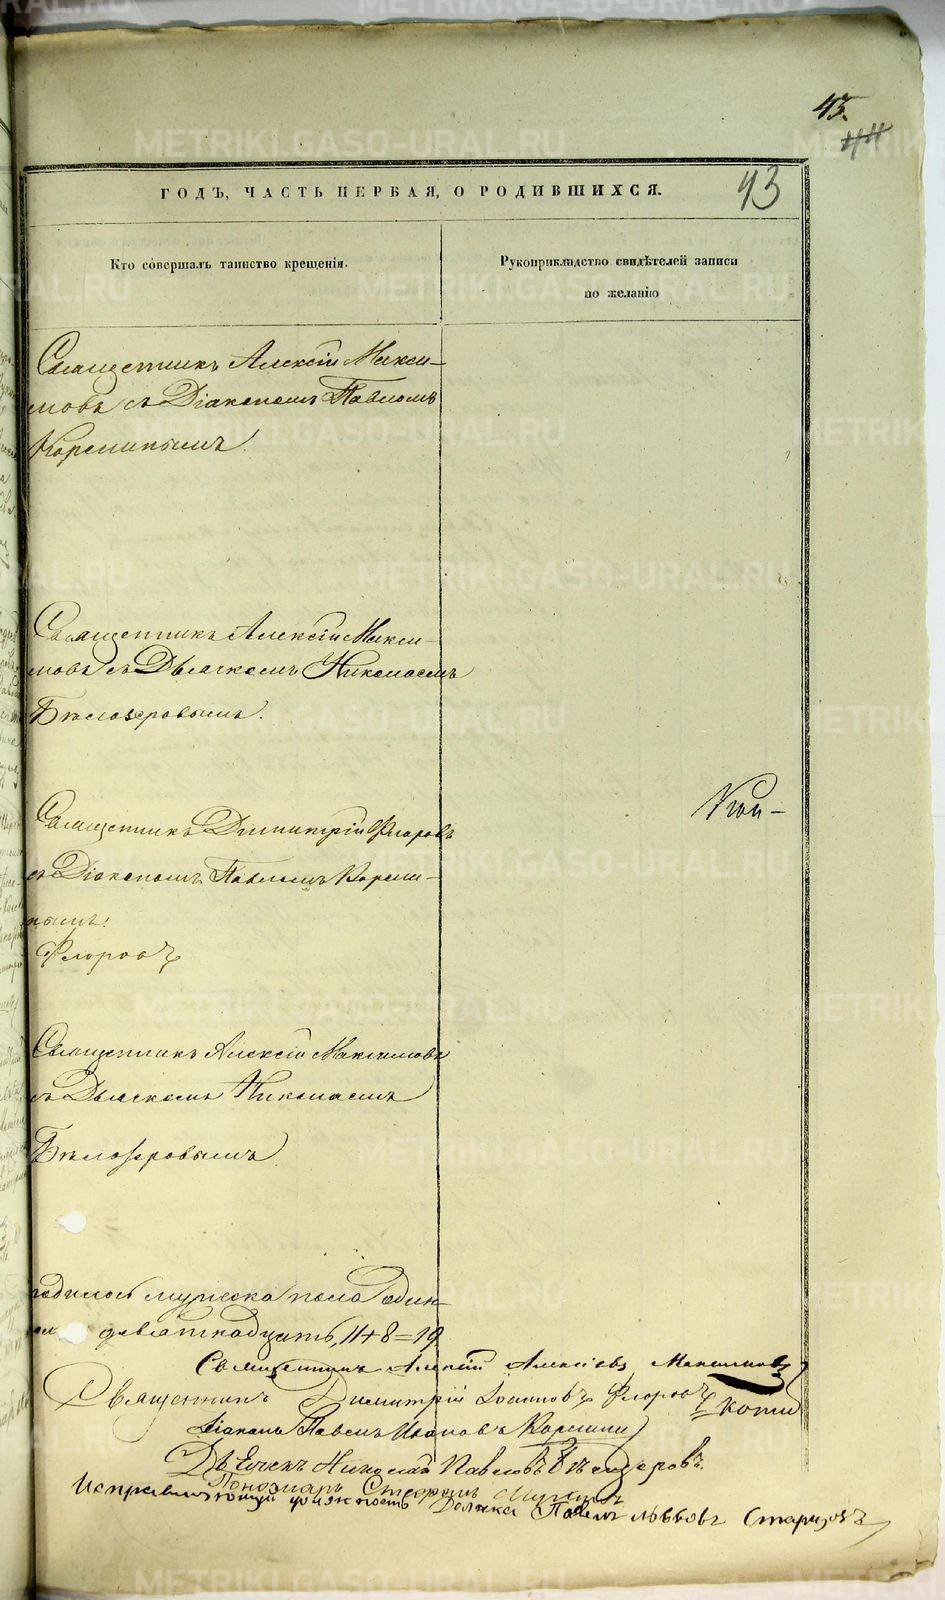 43.
44
43
ГОДЪ, ЧАСТЬ ПЕРВАЯ, О РОДИВШИХСЯ.
Кто совершалъ таинство крещенія.
Рукоприкладство свидѣтелей записи
по желанію
Священникъ Алексій Макси-
мовъ съ Діакономъ Павломъ
Корелинымъ
Священникъ Алексій Макси-
мовъ съ Дьячкомъ Николаемъ
Бѣлозеровымъ.
Священникъ Димитрій Флоровъ
съ Діакономъ Павломъ Корели-
нымъ.
Флоровъ
Священникъ Алексій Максимовъ
съ Дьячкомъ Николаемъ
Бѣлозеровымъ
родилось мужеска пола один-
девятнадцать, 11+8=19
Священникъ Алексій Алексіевъ Максимовъ
Священникъ Димитрій Іоанновъ Флоровъ
Діаконъ Павелъ Ивановъ Корелинъ
Дьячекъ Николай Павловъ Бѣлозеровъ.
Пономарь
Исправляющій должность Дьячка Павелъ Львовъ Старцовъ
METRIKI.GASO-URAL.RU